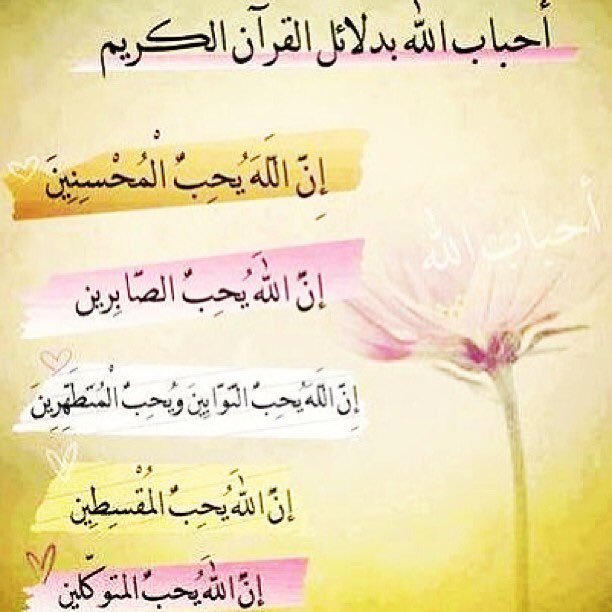 أحباب الله بدلائل القرآن الكريم
إِنَّ اللَّهَ يُحِبُّ الْمُحْسِنِينَ
أحباب الله
إنّ اللّٰهَ يُحِبُّ الصّابِرِين
إِنَّ اللَّهَ يُحِبُّ التَّوَّابِينَ وَيُحِبُّ الْمُتَطَهِّرِينَ
إنّ اللّٰهَ يُحِبُّ المُقْسِطِين
إنّ اللّٰهَ يُحِبُّ المتوكّلين